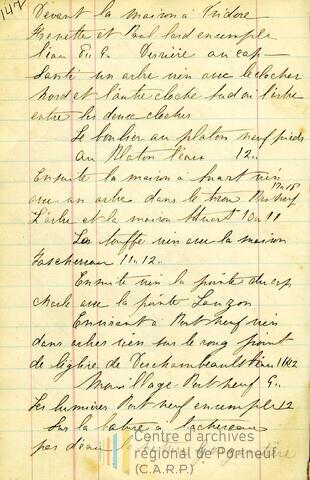 147
Devant la maison à Isidore
Frenette et Paul lard en emple
l'eau Derriere au cap
Santé un arbre vien avec le clocher
Nord et l'autre cloche sud ou l'arbre
entre les deux cloches
Le boulier au platon neuf pieds
au Platon l'eau 12..
Ensuite la maison à Stuart vien
17 a 18
avec un arbre dans le trou
L'arbre et la maison Stuart 10 a 11
La touffe vien avec la maison
Taschereau 11.12..
Ensuite vien la pointe du cap
Charle avec la pointe Lauzon
En virant a Portneuf vien
dans arbres vien sur le rond point
de l'église de Deschambeault l'eau
Mouillage Portneuf
Les lumières Portneuf en emple 12
Sur la batture a Lachereau
pas d'eau
Centre d'archives
régionale de Portneuf
(C.A.R.P.)